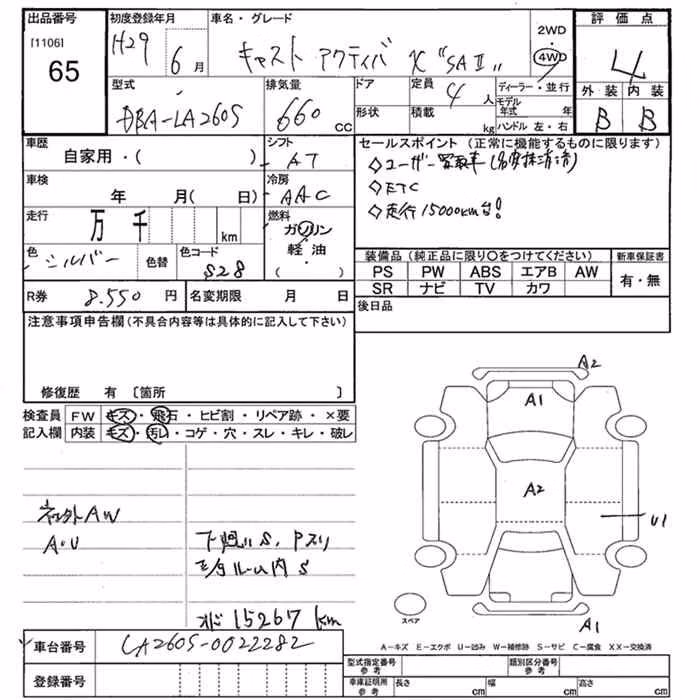 出品番号 初度登録年月 車名・グレード
[1106] 65 H29 6月 キャスト アクティバ X "SAⅡ" 2WD 4WD
評価点 4
外装 内装
B B
型式 DBA-LA260S 排気量 660 cc
ドア 形状 定員 4人 積載 kg
ディーラー・並行
モデル年式 年
ハンドル 左・右
車歴 自家用・( ) シフト AT
車検 年 月( 日) 冷房 AAC
走行 万 千 km 燃料 ガソリン 軽油 ( )
色 シルバー 色替 色コード S28
R券 8.550 円 名変期限 月 日
セールスポイント(正常に機能するものに限ります)
◇ユーザー買取車(名変抹消済)
◇ETC
◇走行15000km台!
装備品(純正品に限り○をつけてください) 新車保証書
PS PW ABS エアB AW 有・無
SR ナビ TV カワ
後日品
注意事項申告欄(不具合内容等は具体的に記入して下さい)
修復歴 有 〔箇所 〕
検査員 FW キズ・飛石・ヒビ割・リペア跡・×要
記入欄 内装 キズ・汚レ・コゲ・穴・スレ・キレ・破レ
ネット外AW
A・U
下廻りS、Pスリ
モタルーム内S
15267km
A2
A1
A2
U1
A1
スペア
A−キズ E−エクボ U−凹み W−補修跡 S−サビ C−腐食 XX−交換済
車台番号 LA260S-0022282
登録番号
型式指定番号 参考 類別区分番号 参考
車庫証明用 参考 長さ cm 幅 cm 高さ cm